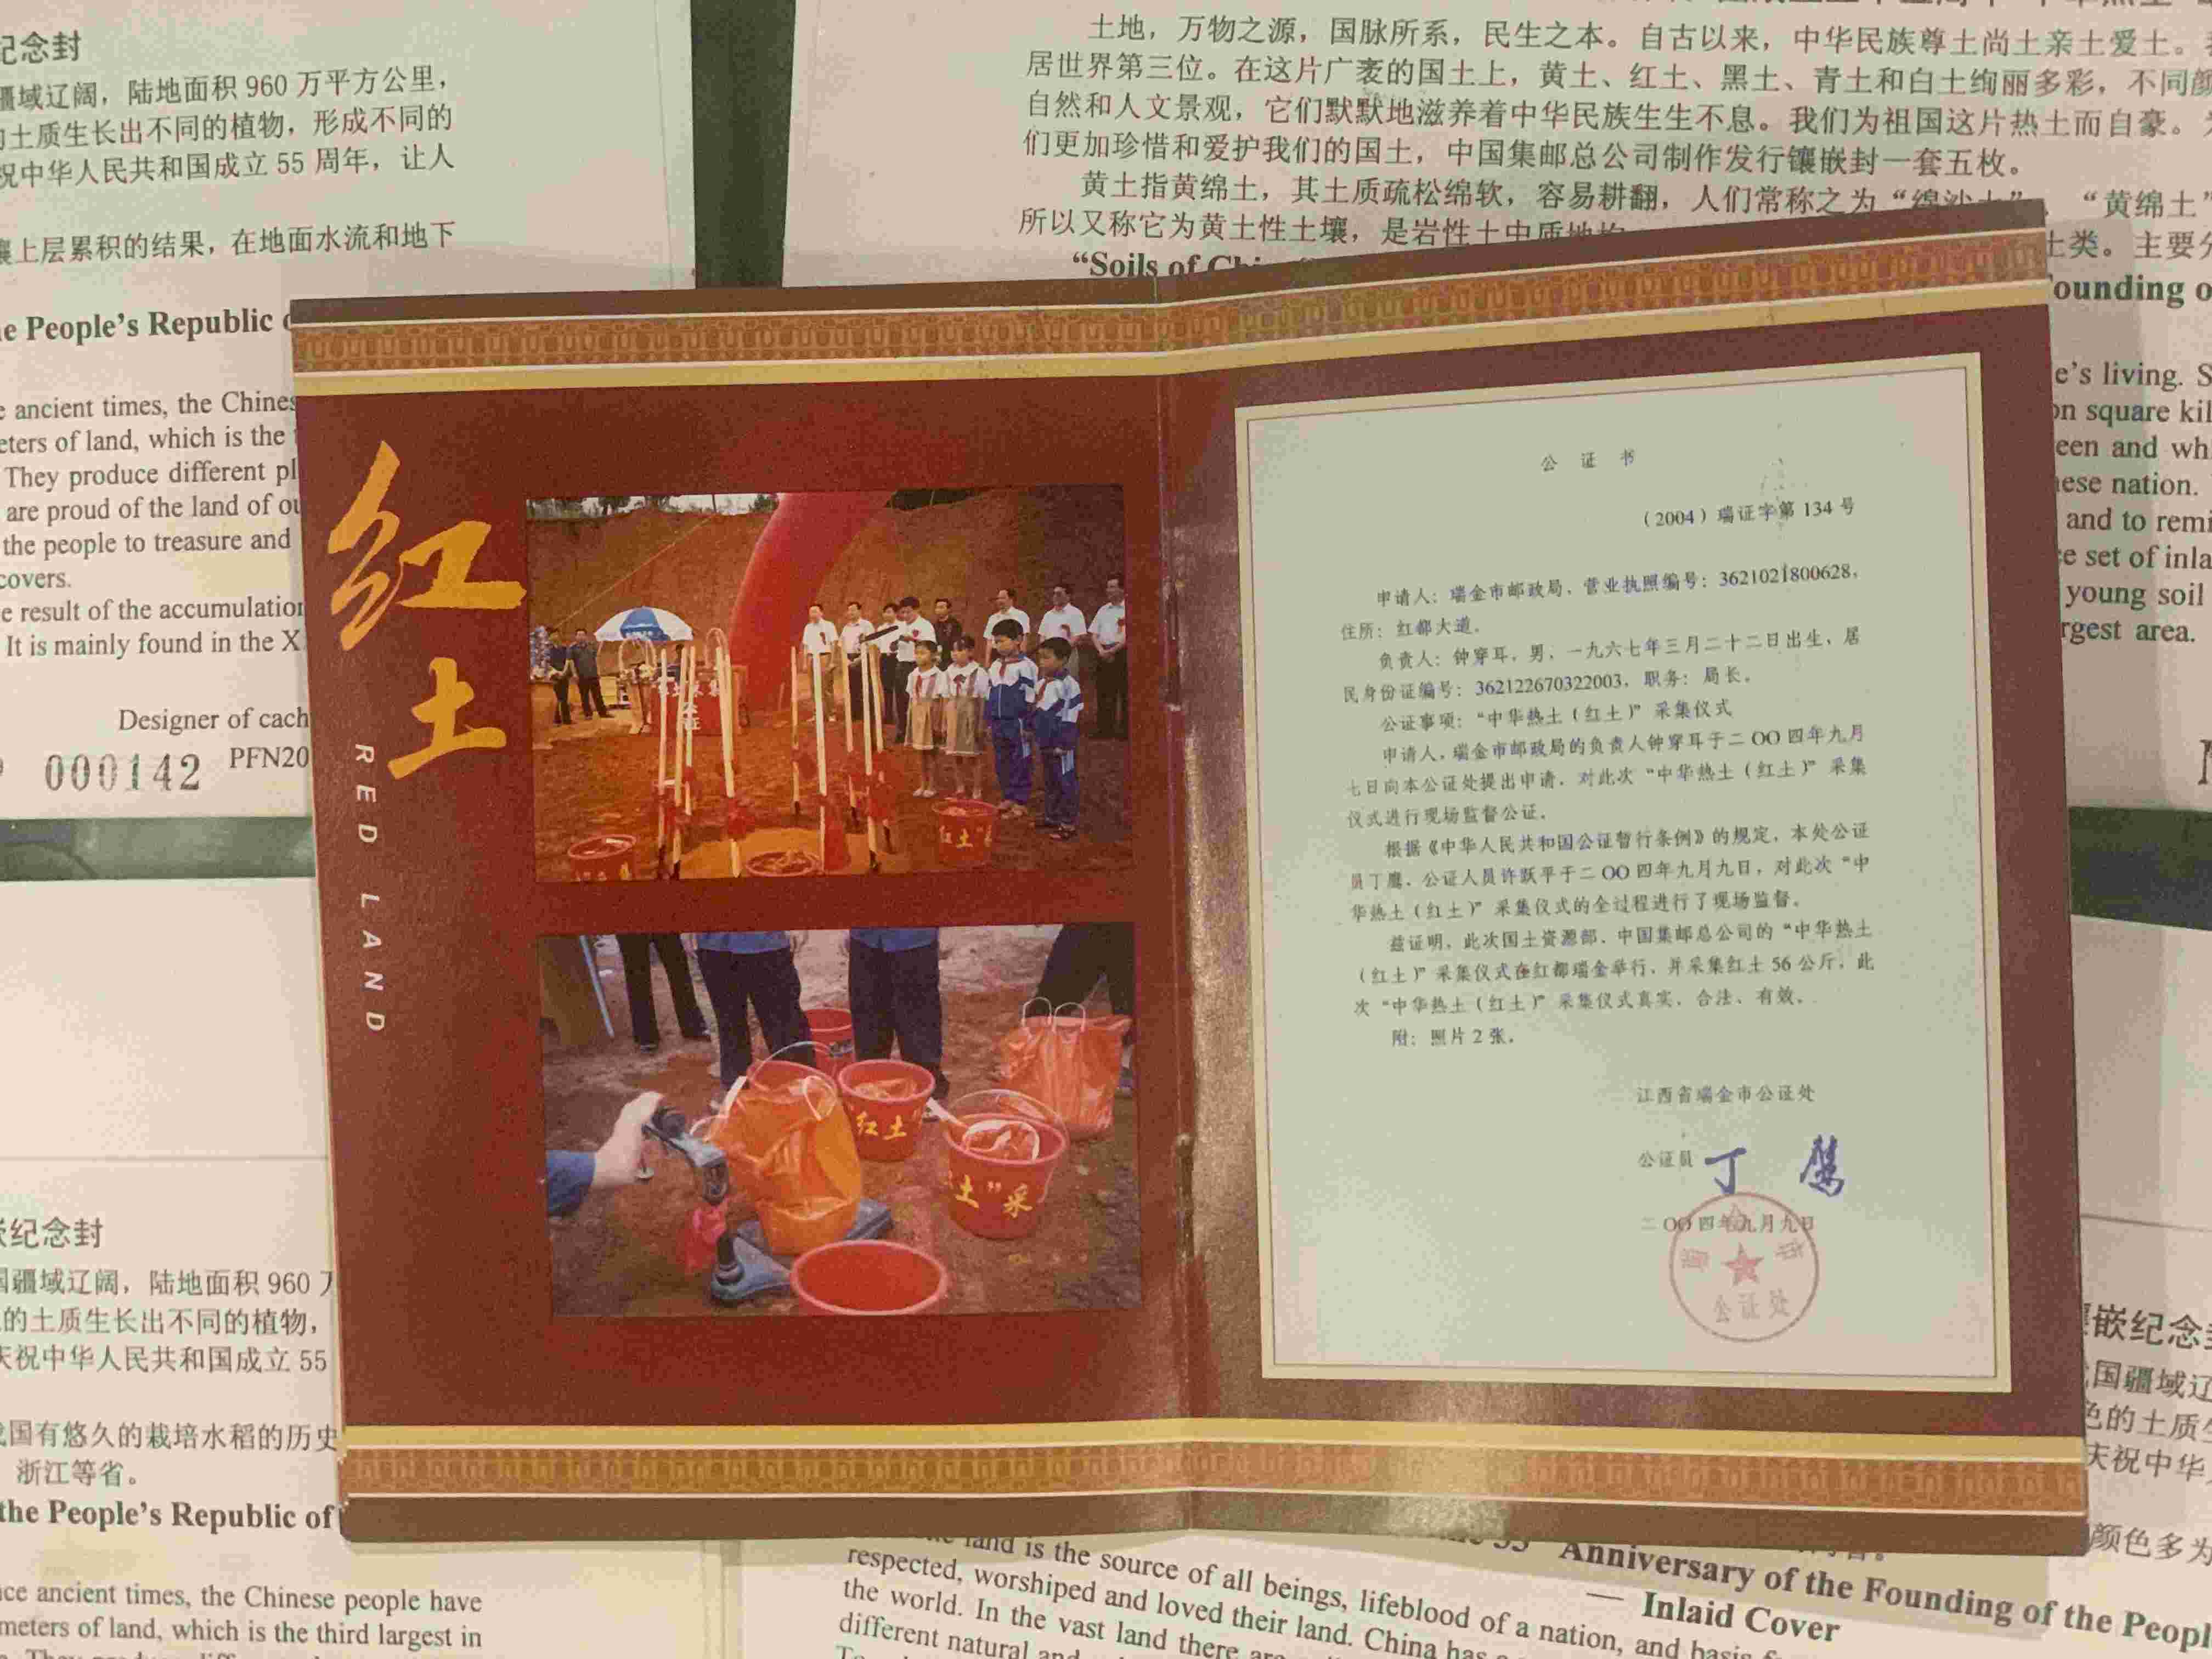 纪念封
疆域辽阔，陆地面积 960 万平方公里，
土质生长出不同的植物，形成不同的
祝中华人民共和国成立 55 周年，让人
壤上层累积的结果，在地面水流和地下
People's Republic
ancient times, the Chines
eters of land, which is the
They produce different pl
are proud of the land of ou
the people to treasure and
covers.
e result of the accumulation
It is mainly found in the X
Designer of cach
000142 PFN20
土地，万物之源，国脉所系，民生之本。自古以来，中华民族尊土尚土亲土爱土。
居世界第三位。在这片广袤的国土上，黄土、红土、黑土、青土和白土绚丽多彩，不同颜
自然和人文景观，它们默默地滋养着中华民族生生不息。我们为祖国这片热土而自豪。
们更加珍惜和爱护我们的国土，中国集邮总公司制作发行镶嵌封一套五枚。
黄土指黄绵土，其土质疏松绵软，容易耕翻，人们常称之为“绵沙土”、“黄绵土”
所以又称它为黄土性土壤，是岩性土中质地均
土类。主要分
“Soils of Chi
ounding o
e's living. S
on square kil
een and wh
ese nation.
and to remi
e set of inla
young soil
rgest area.
红土
RED LAND
红土
红土
土”采
公 证 书
（2004）瑞证字第 134 号
申请人：瑞金市邮政局，营业执照编号：3621021800628，
住所：红都大道。
负责人：钟穿耳，男，一九六七年三月二十二日出生，居
民身份证编号：362122670322003，职务：局长。
公证事项：“中华热土（红土）”采集仪式
申请人，瑞金市邮政局的负责人钟穿耳于二OO四年九月
七日向本公证处提出申请，对此次“中华热土（红土）”采集
仪式进行现场监督公证。
根据《中华人民共和国公证暂行条例》的规定，本处公证
员丁鹰、公证人员许跃平于二OO四年九月九日，对此次“中
华热土（红土）”采集仪式的全过程进行了现场监督。
兹证明，此次国土资源部、中国集邮总公司的“中华热土
（红土）”采集仪式在红都瑞金举行，并采集红土 56 公斤，此
次“中华热土（红土）”采集仪式真实、合法、有效。
附：照片 2 张。
江西省瑞金市公证处
公证员 丁 鹰
二OO四年九月九日
公证处
嵌纪念封
国疆域辽阔，陆地面积 960 万
的土质生长出不同的植物，
庆祝中华人民共和国成立 55
我国有悠久的栽培水稻的历史
浙江等省。
the People's Republic of
nce ancient times, the Chinese people have
meters of land, which is the third largest in
land is the source of all beings, lifeblood of a nation, and basis
respected, worshiped and loved their land. China has
the world. In the vast land there are
different natural and
Anniversary of the Founding of the Peopl
— Inlaid Cover
镶嵌纪念封
国疆域辽
色的土质生
庆祝中华
颜色多为